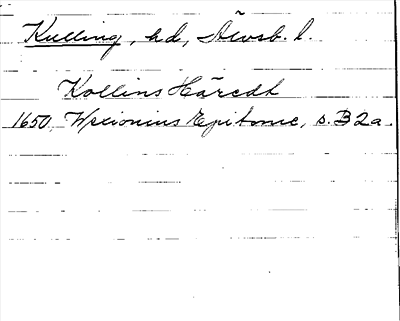 Kulling, hd, Älvsb. l.
Kollins Häredt
1650, Wexionius Epitome, s. B2a.